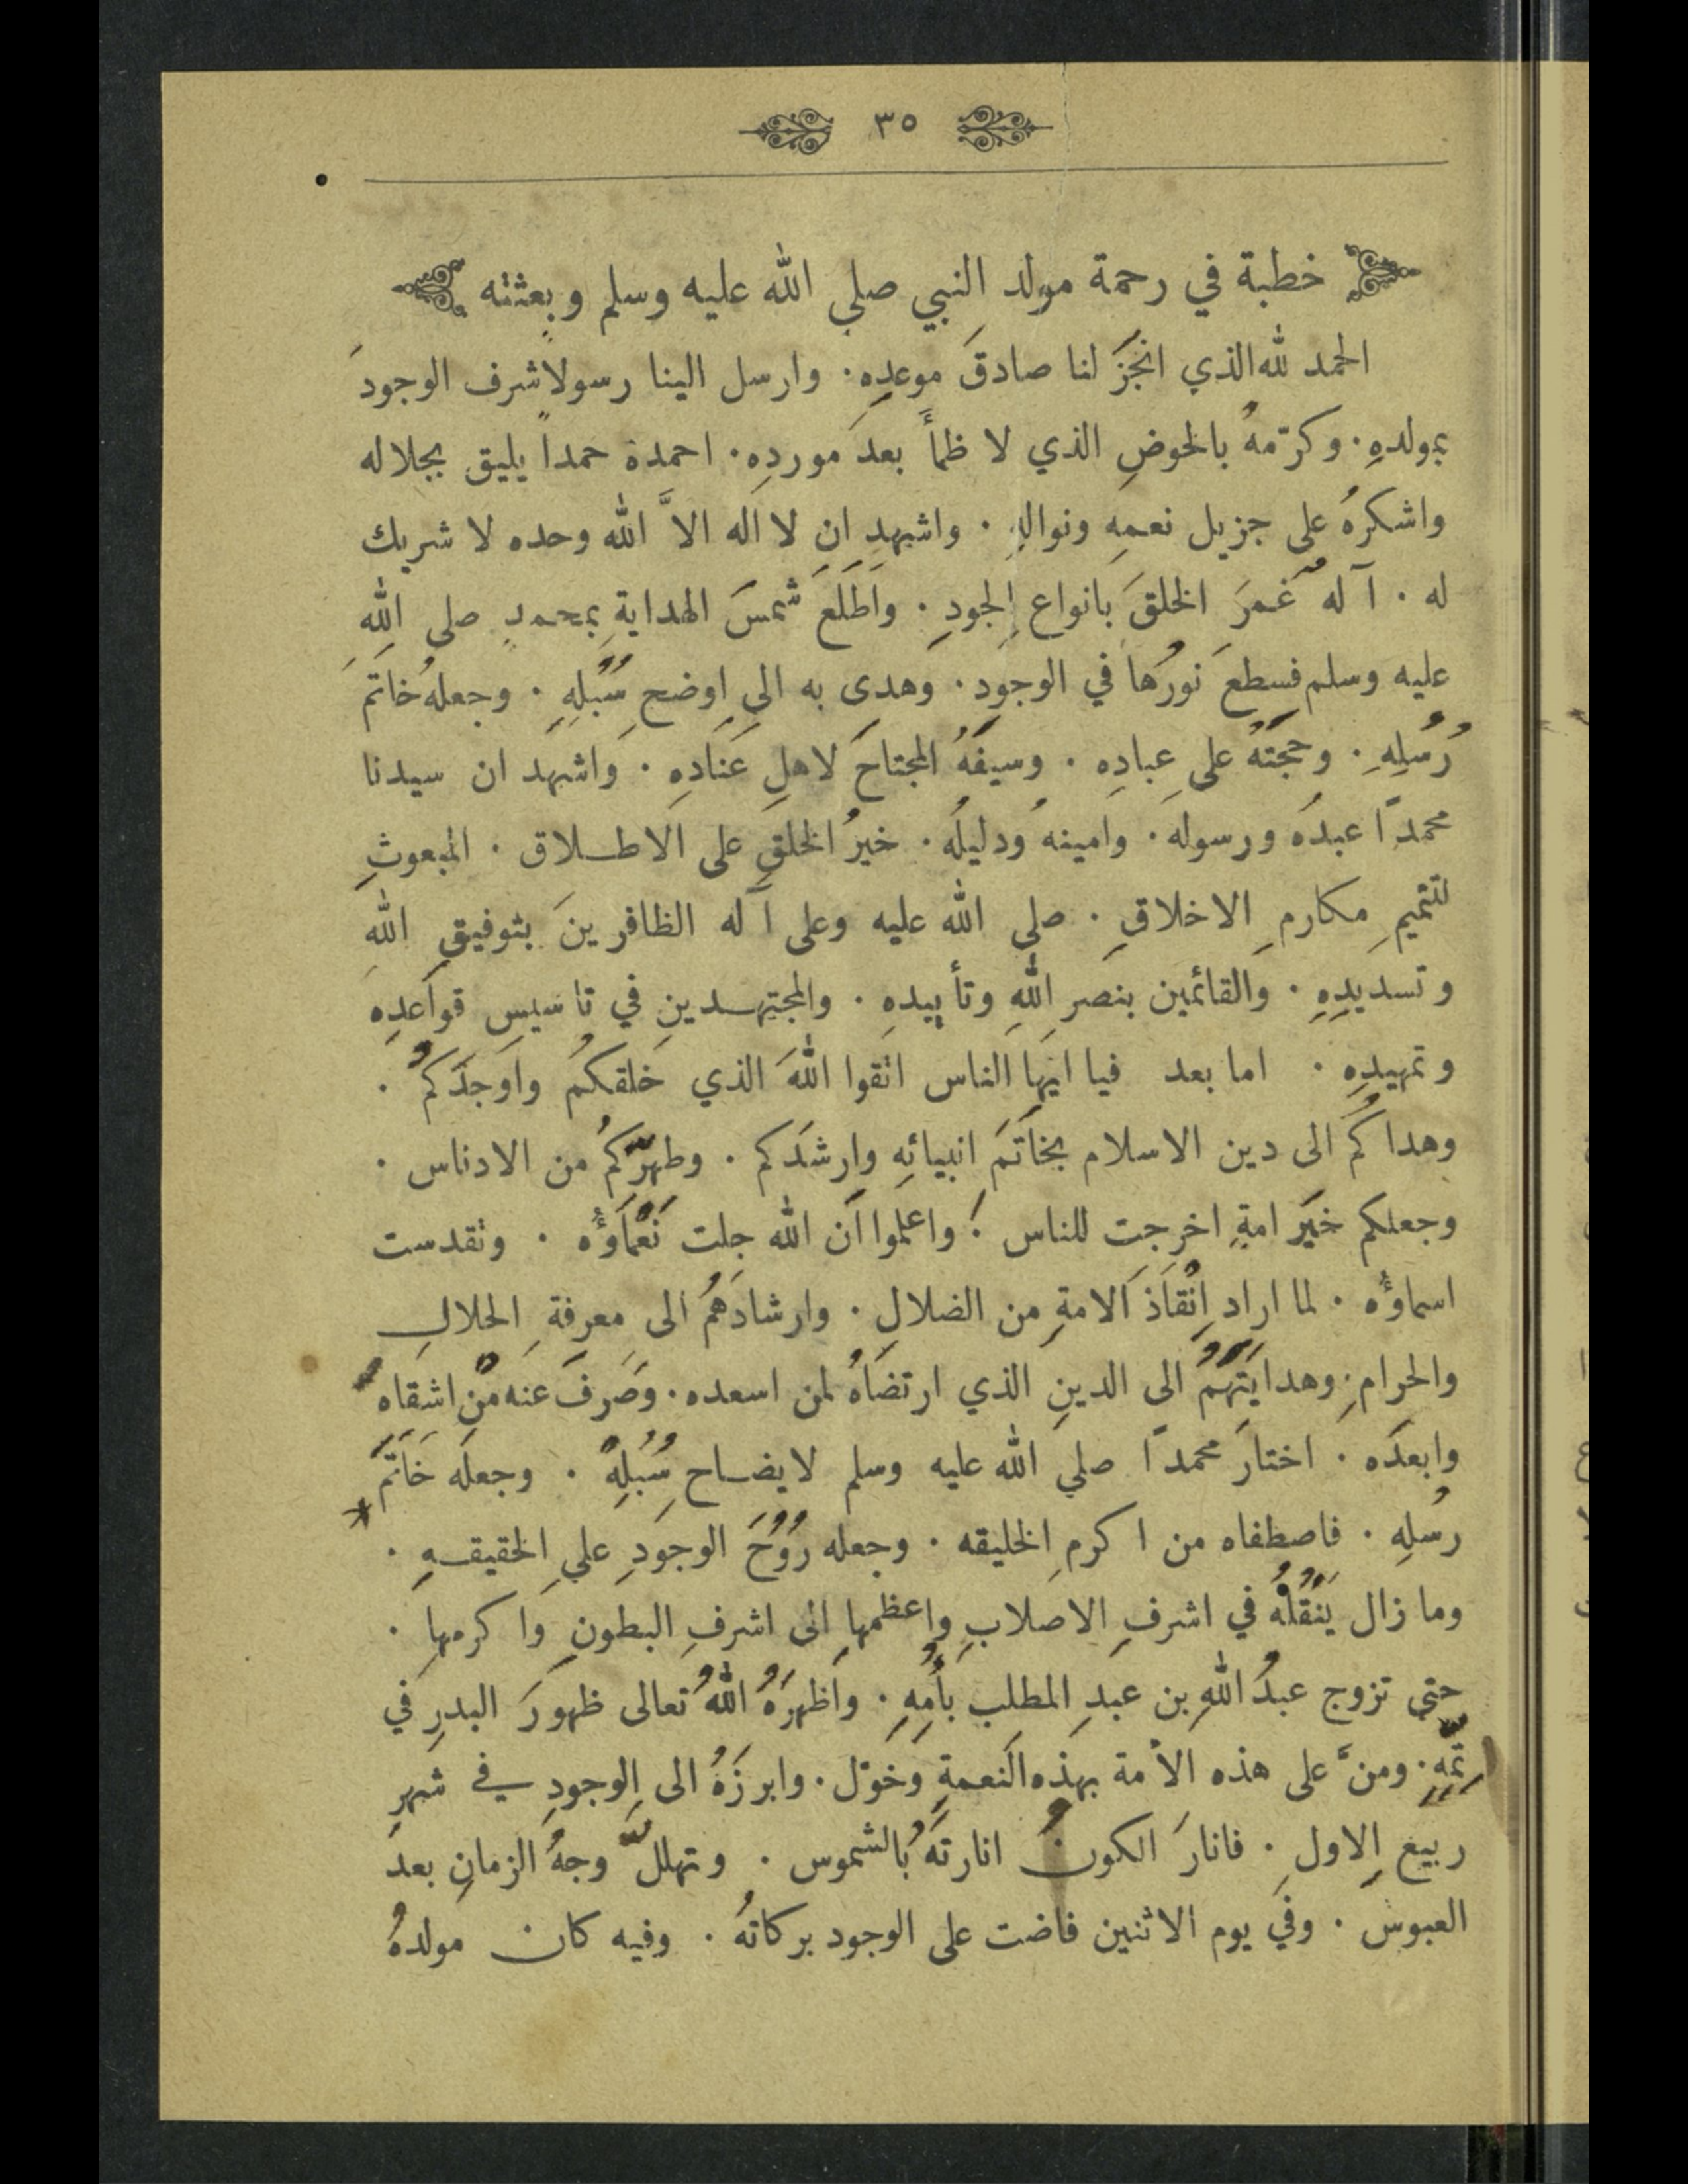 ٣٥
خطبة في رحمة مولد النبي صلي الله عليه وسلم وبعثته
الحمد لله الذي انجَزَ لنا صادقَ موعدِهِ ۰ وارسل الينا رسولاً شرف الوجودَ
بمولدِهِ ۰ وكرّمهُ بالحوضِ الذي لا ظمأَ بعدَ موردِهِ ۰ احمدهُ حمداً يليق بجلاله
واشكرهُ على جزيل نعمِهِ ونوالِهِ ۰ واشهد ان لا اله الاَّ الله وحده لا شريك
له ۰ آلهٌ غمرَ الخلقَ بانواعِ الجودِ ۰ واَطلَعَ شمسَ الهدايةِ بمحمدٍ صلى اللهِ
عليه وسلم فسطعَ نورُها في الوجودِ ۰ وهدى به الى اوضحِ سُبُلِهِ ۰ وجعلهُ خاتَمَ
رُسُلِهِ ۰ وحجتَهُ على عبادِهِ ۰ وسيفَهُ المجتاحَ لاهلِ عنادِهِ ۰ واشهد ان سيدنا
محمدًا عبدُه ورسوله ۰ وامينهُ ودليلُه ۰ خيرُ الخلقِ على الاطلاق ۰ المبعوثِ
لتتميمِ مكارمِ الاخلاقِ ۰ صلى الله عليه وعلى آله الظافرينَ بتوفيقِ اللهِ
وتسديدِهِ ۰ والقائمين بنصرِ اللهِ وتأييدِهِ ۰ والمجتهدين في تاسيسِ قواعدِهِ
وتمهيدِهِ ۰ اما بعد فيا ايها الناس اتقوا اللهَ الذي خلقكُم واَوجَدَكُم ۰
وهداكُم الى دين الاسلام بخاتَمِ انبيائِهِ وارشَدَكم ۰ وطهَّرَكُم من الادناس ۰
وجعلكم خيَر امةٍ اخرجت للناس ۰ واعلموا اَن الله جلت نَعْمَاؤُه ۰ وتقدست
اسماؤُه ۰ لما اراد اِنْقَاذَ الامةِ من الضلالِ ۰ وارشادَهُم الى معرِفةِ الحلالِ
والحرامِ ۰ وهدايَتَهُمُ الى الدينِ الذي ارتضَاهُ لمن اسعده ۰ وصَرفَ عنه مَنْ اشقاه
وابعدَه ۰ اختارَ محمدًا صلي الله عليه وسلم لايضاح سُبُلِهِ ۰ وجعلَه خَاتَمَ
رسُلِهِ ۰ فاصطفاه من اكرمِ الخليقه ۰ وجعله رُوُحَ الوجودِ علي الحقيقهِ ۰
وما زال يَنْقُلُهُ في اشرفِ الاصلابِ واعظمِها الى اشرفِ البطونِ واكرمِها ۰
حتى تزوج عبدُ اللهِ بن عبدِ المطلب بأُمِهِ ۰ واَظهرَهُ اللهُ تعالى ظهورَ البدرِ في
تِمِّهِ ۰ ومنَّ على هذه الأمة بهذه النعمةِ وخوّل ۰ وابرزَهُ الى الوجودِ في شهرِ
ربيع الاولِ ۰ فانارَ الكونُ انارتَهُ بالشموس ۰ وتهللَّ وجهُ الزمانِ بعدَ
العبوس ۰ وفي يوم الاثنين فاضت على الوجود بركاتهُ ۰ وفيه كان مولدهُ